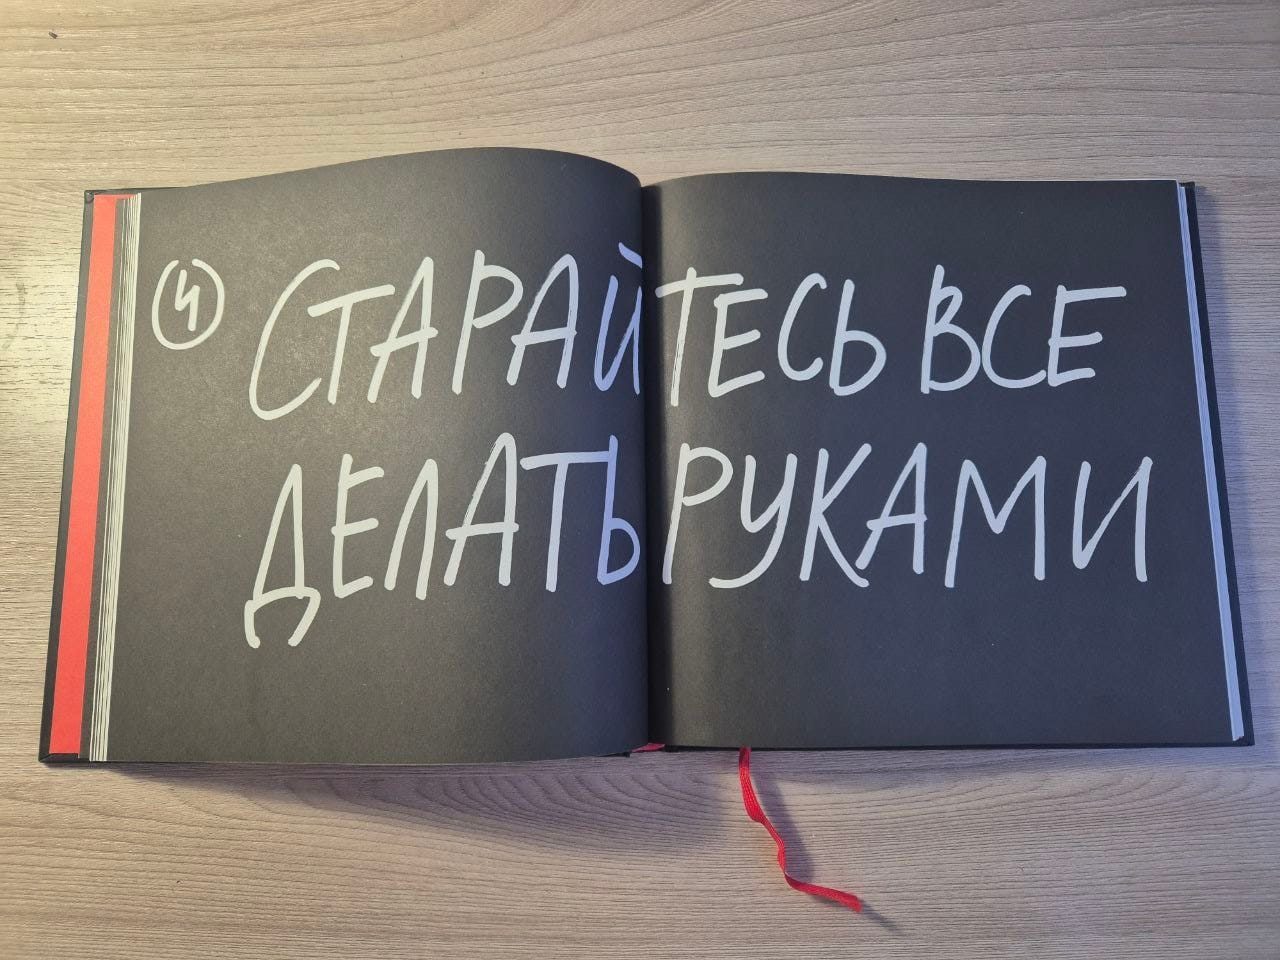 4 СТАРАЙТЕСЬ ВСЕ
ДЕЛАТЬ РУКАМИ